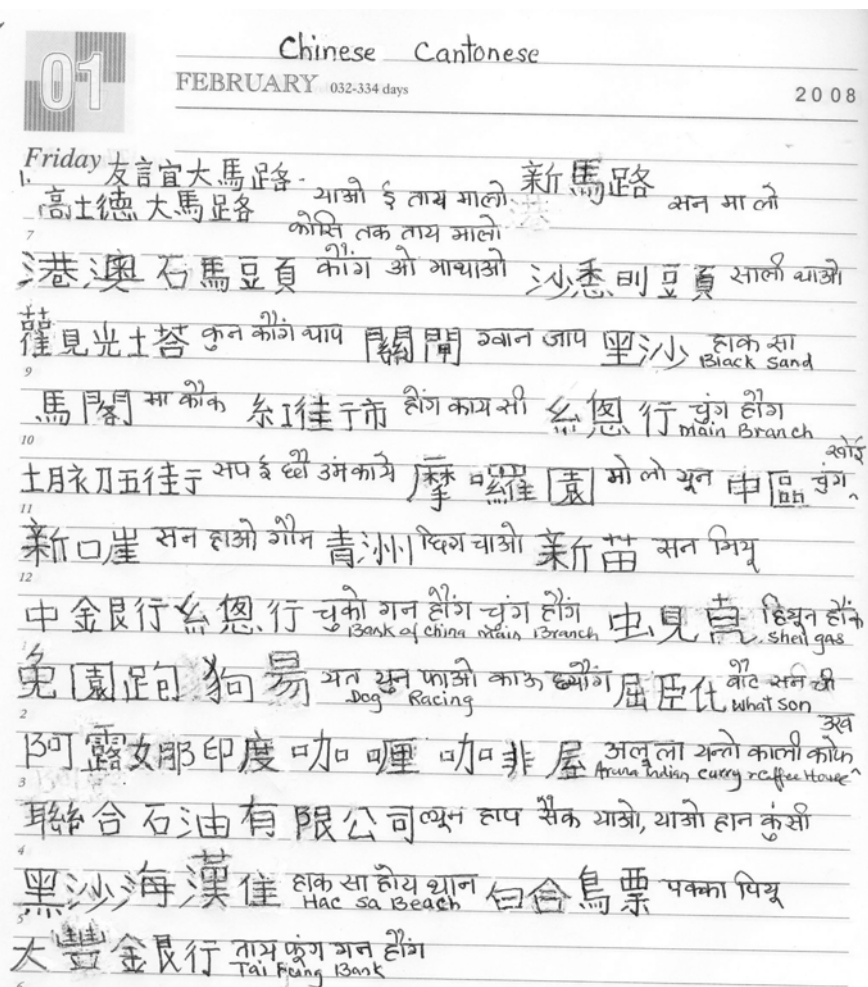 Chinese Cantonese
01
FEBRUARY 032-334 days
2008
Friday
1. 友誼大馬路. याओ ई ताय मालो 新馬路 सन मा लो
高士德大馬路 कोसि तक ताय मालो
7
港澳石馬頭 कौंग ओ माथाओ 沙梨頭 साली थाओ
光塔 कुन कौंग थाप 關閘 ग्वान जाप 黑沙 हाक सा
Black Sand
9
馬閣 मा कौक 紅街市 होंग काय सी 行 चुंग हौंग
Main Branch
10
摩囉園 मो लो यून 中區 चुंग
11
新口崖 सन हाओ गौम 青洲 छिंग चाओ 新苗 सन मियू
12
中銀行 行 चुंको गन हौंग चुंग हौंग
Bank of China Main Branch
Shell gas
2
兔園跑狗場 यत युन फाओ काऊ छ्यौंग 屈臣 वौट सन ची
Dog Racing
What son
3
阿露娜印度咖喱咖啡屋 अलूला यन्तो काली कोफ
Aruna Indian Curry & Coffee House
4
聯合石油有限公司 ल्यून हाप सैक याओ, याओ हान कुंसी
5
黑沙海灘 हाक सा होय थान पक्का पियू
Hac Sa Beach
大豐銀行 ताय फूंग गन हौंग
Tai Fung Bank
6